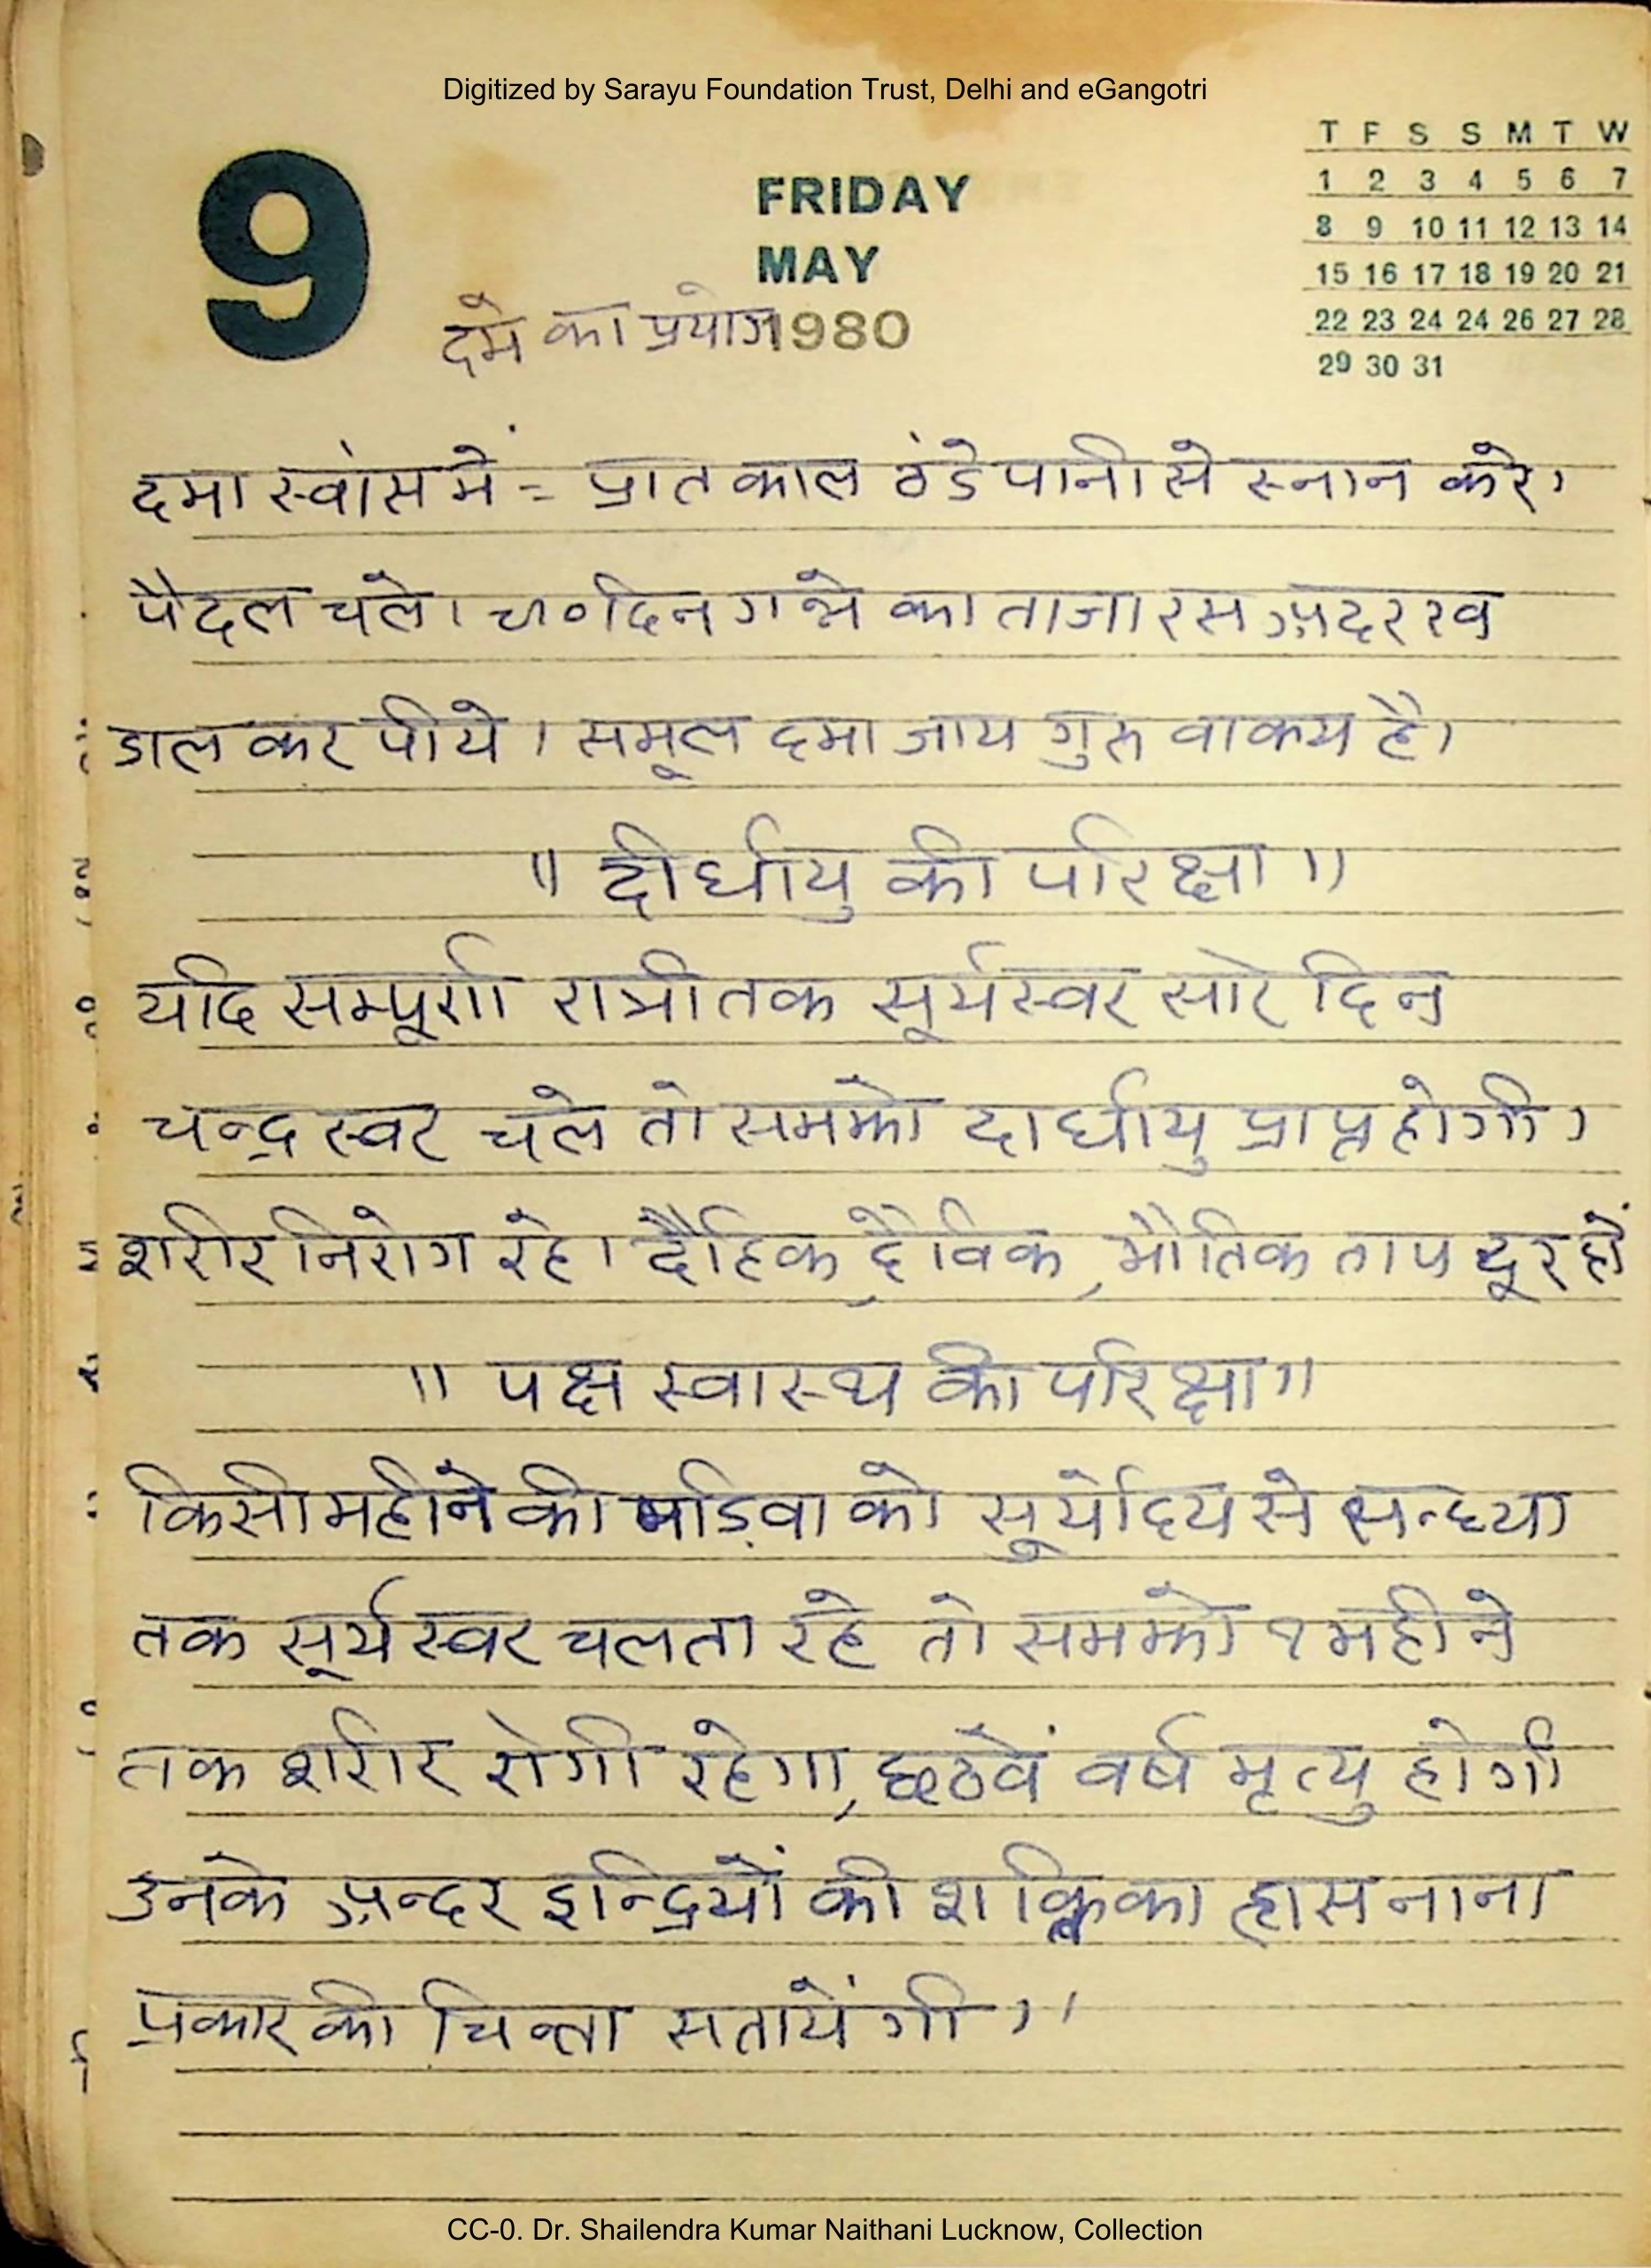 Digitized by Sarayu Foundation Trust, Delhi and eGangotri
9
FRIDAY
MAY
1980
T F S S M T W
1 2 3 4 5 6 7
8 9 10 11 12 13 14
15 16 17 18 19 20 21
22 23 24 24 26 27 28
29 30 31
दमे का प्रयोग
दमा स्वांस में = प्रात काल ठंडे पानी से स्नान करे।
पैदल चले। दिन गन्ने का ताजा रस अदरख
डाल कर पीये। समूल दमा जाय गुरु वाक्य है।
॥ दीर्घायु की परिक्षा ॥
यदि सम्पूर्ण रात्री तक सूर्यस्वर सारे दिन
चन्द्र स्वर चले तो समझो दार्घायु प्राप्त होगी।
शरीर निरोग रहे। दैहिक, दैविक, भौतिक ताप दूर हों
॥ पक्ष स्वास्थ की परिक्षा ॥
किसी महीने की पड़िवा को सूर्योदय से सन्ध्या
तक सूर्य स्वर चलता रहे तो समझो १ महीने
तक शरीर रोगी रहेगा, छठवें वर्ष मृत्यु होगी
उनके अन्दर इन्द्रियों की शक्ति का ह्रास नाना
प्रकार की चिन्ता सतायेंगी ॥
CC-0. Dr. Shailendra Kumar Naithani Lucknow, Collection